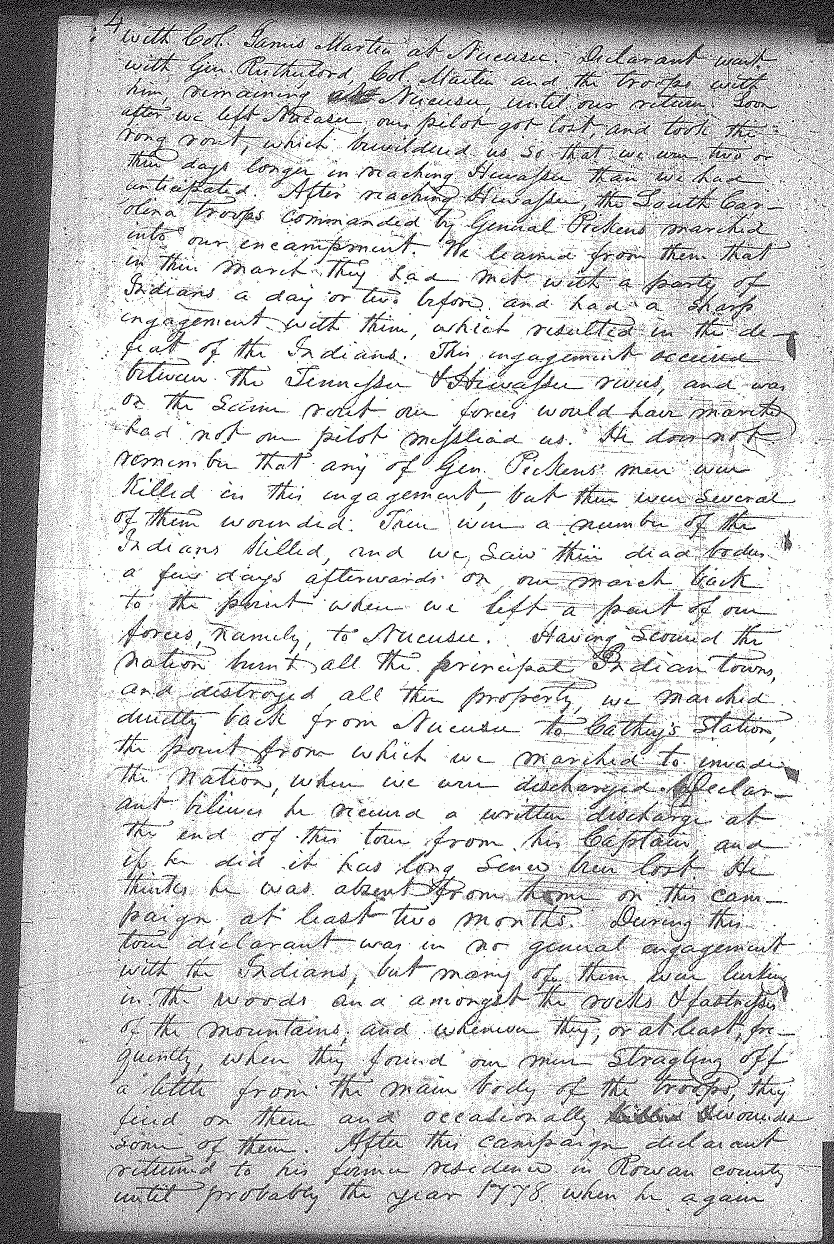 4
with Col. James Martin at Nucusee. Declarant went
with Gen. Rutherford, Col. Martin and the troops with
him remaining at Nucusee, until our return. Soon
after we left Nucasee, our pilot got lost, and took the
rong rout, which bewildered us so that we were two or
three days longer in reaching Hiwassee than we had
anticipated. After reaching Hiwassee, the South Car-
olina troops commanded by General Pickens marched
into our encampment. We learned from them that
in their march they had met with a party of
Indians a day or two before, and had a sharp
engagement with them, which resulted in the de-
feat of the Indians. This engagement occured
between the Tennessee & Hiwassee rivers, and was
on the same rout our forces would have marched
had not our pilot misslead us. He does not
remember that any of Gen. Pickens' men were
killed in this engagement, but there were several
of them wounded. There were a number of the
Indians killed, and we saw their dead bodies
a few days afterwards on our march back
to the point where we left a part of our
forces, namely, to Nucusee. Having scoured the
nation burnt all the principal Indian towns,
and destroyed all their property, we marched
directly back from Nucusee to Cathey's Station,
the point from which we marched to invade
the nation, where we were discharged. Declar-
ant believes he received a written discharge at
the end of this tour from his Captain and
if he did it has long since been lost. He
thinks he was absent from home on this cam-
paign, at least two months. During this
tour declarant was in no general engagement
with the Indians, but many of them were lurking
in the woods and amongst the rocks & fastnesses
of the mountains, and whenever they, or at least, fre-
quently, when they found our men stragling off
a little from the main body of the troops, they
fired on them and occasionally killed & wounded
some of them. After this campaign declarant
returned to his former residence in Rowan county
until probably the year 1778 when he again